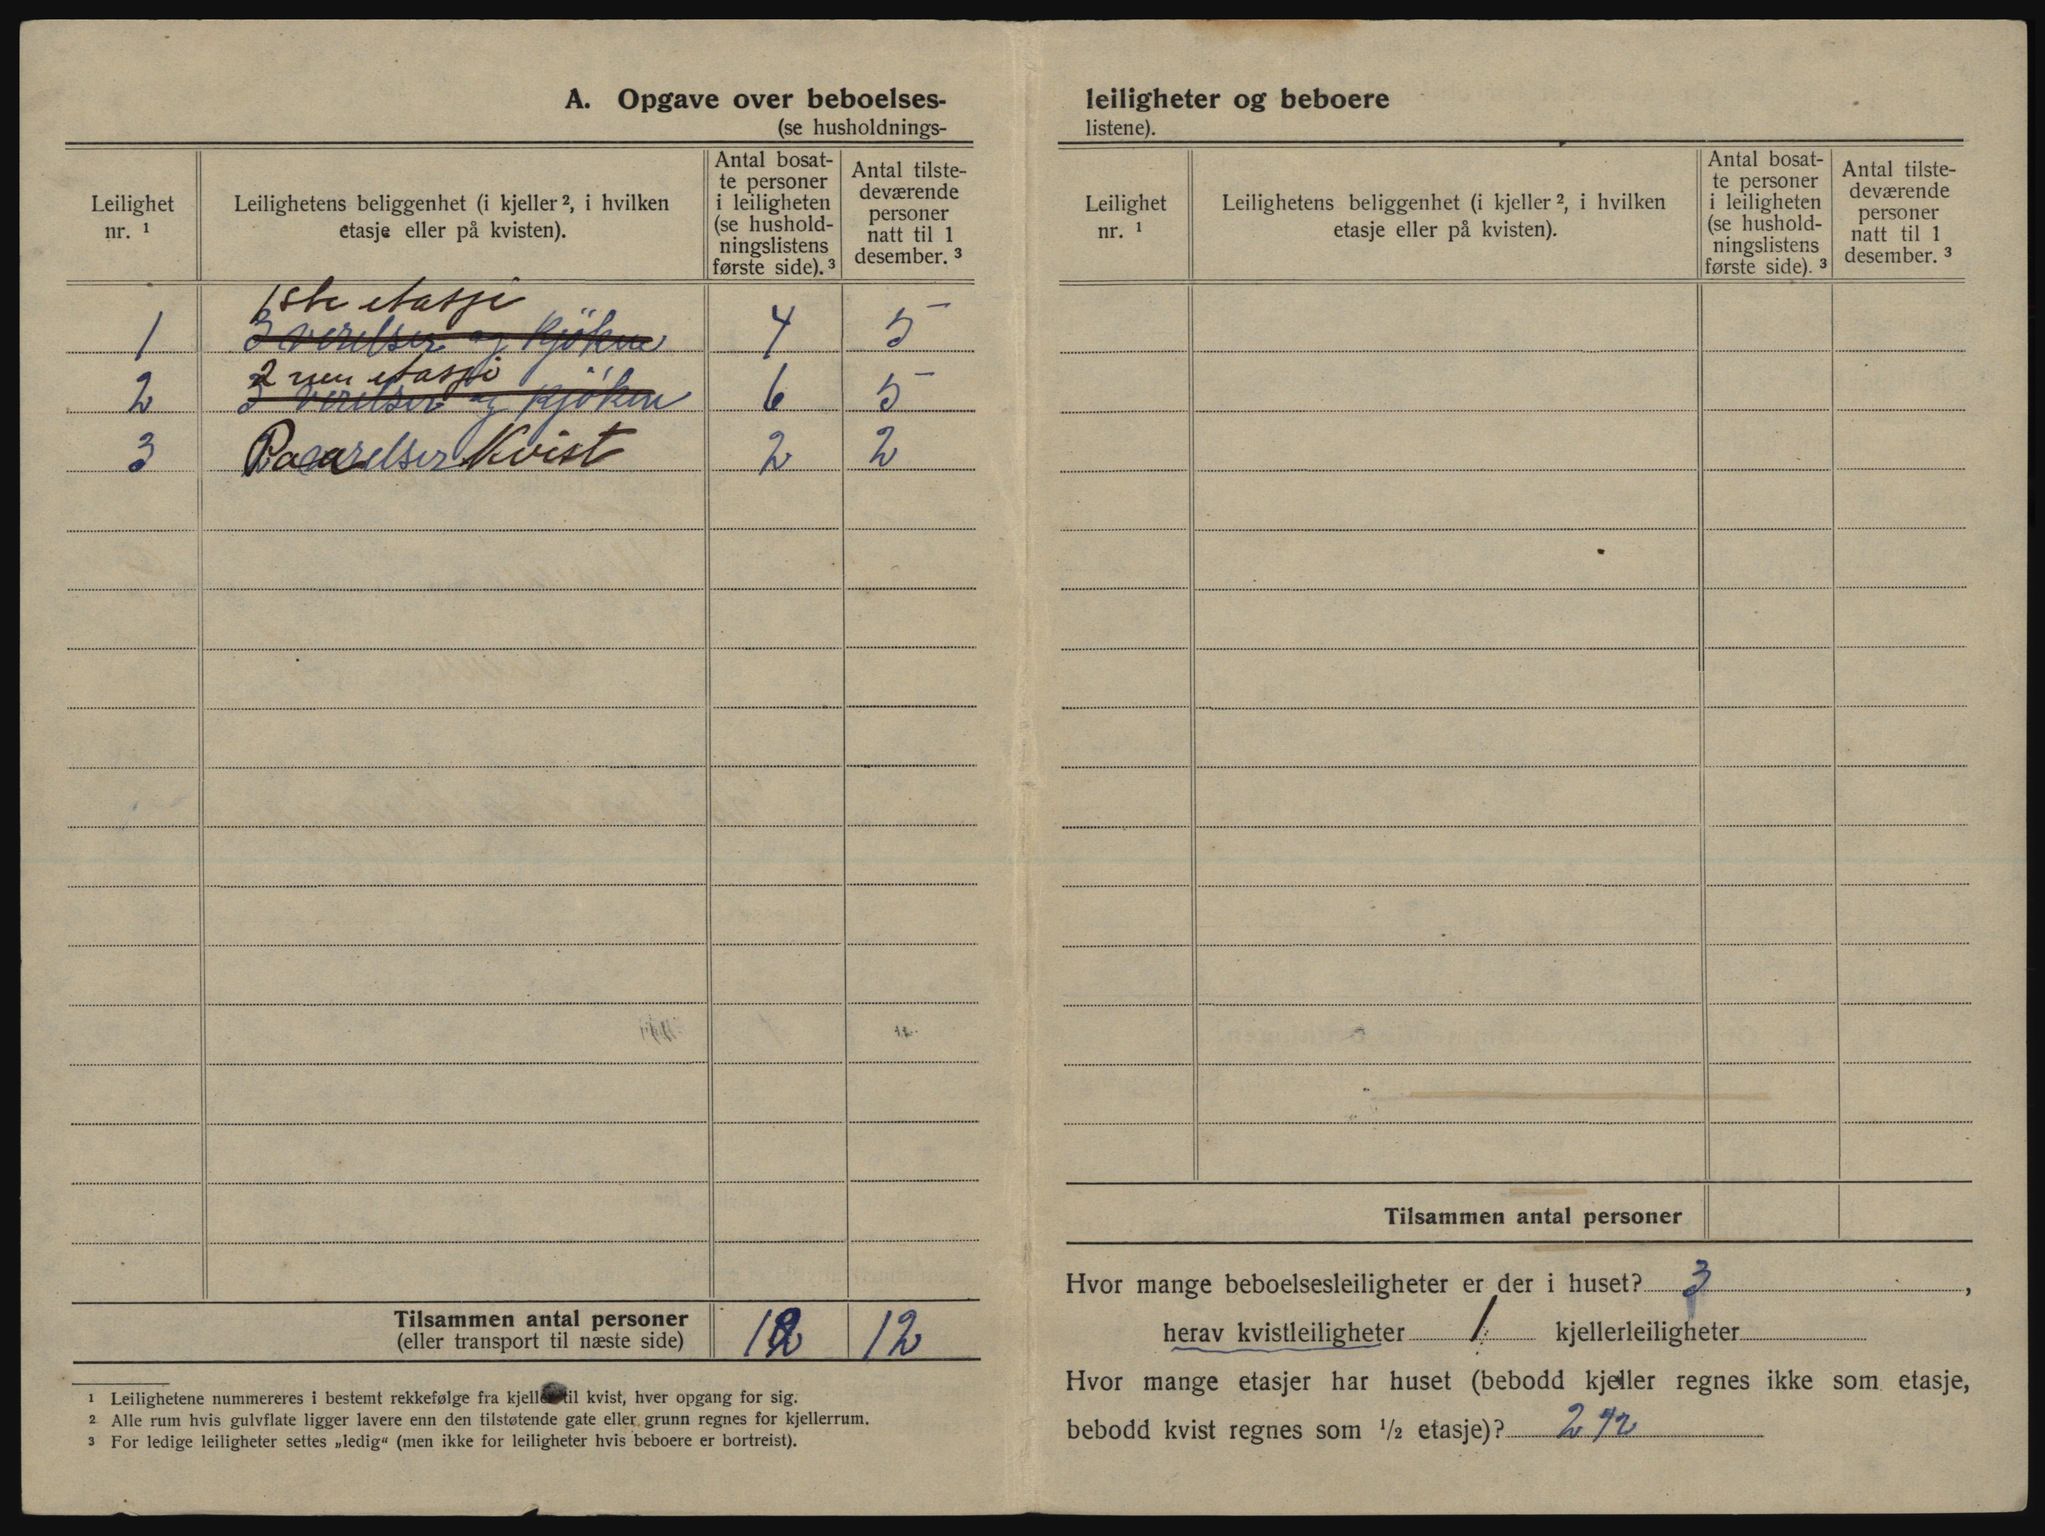 A. Opgave over beboelses-
(se husholdnings-
Leilighet nr. ¹
Leilighetens beliggenhet (i kjeller ², i hvilken etasje eller på kvisten).
Antal bosat-
te personer
i leiligheten
(se hushold-
ningslistens
første side). ³
Antal tilste-
deværende
personer
natt til 1
desember. ³
1ste etasje
1 3 verelser og kjøken 4 5
2nen etasje
2 3 verelser og kjøken 6 5
3 Paa Kvist 2 2
Tilsammen antal personer 12 12
(eller transport til næste side)
¹ Leilighetene nummereres i bestemt rekkefølge fra kjeller til kvist, hver opgang for sig.
² Alle rum hvis gulvflate ligger lavere enn den tilstøtende gate eller grunn regnes for kjellerrum.
³ For ledige leiligheter settes „ledig“ (men ikke for leiligheter hvis beboere er bortreist).
leiligheter og beboere
listene).
Leilighet nr. ¹
Leilighetens beliggenhet (i kjeller ², i hvilken etasje eller på kvisten).
Antal bosat-
te personer
i leiligheten
(se hushold-
ningslistens
første side). ³
Antal tilste-
deværende
personer
natt til 1
desember. ³
Tilsammen antal personer
Hvor mange beboelsesleiligheter er der i huset? 3,
herav kvistleiligheter 1 kjellerleiligheter
Hvor mange etasjer har huset (bebodd kjeller regnes ikke som etasje,
bebodd kvist regnes som ½ etasje)? 2 ½